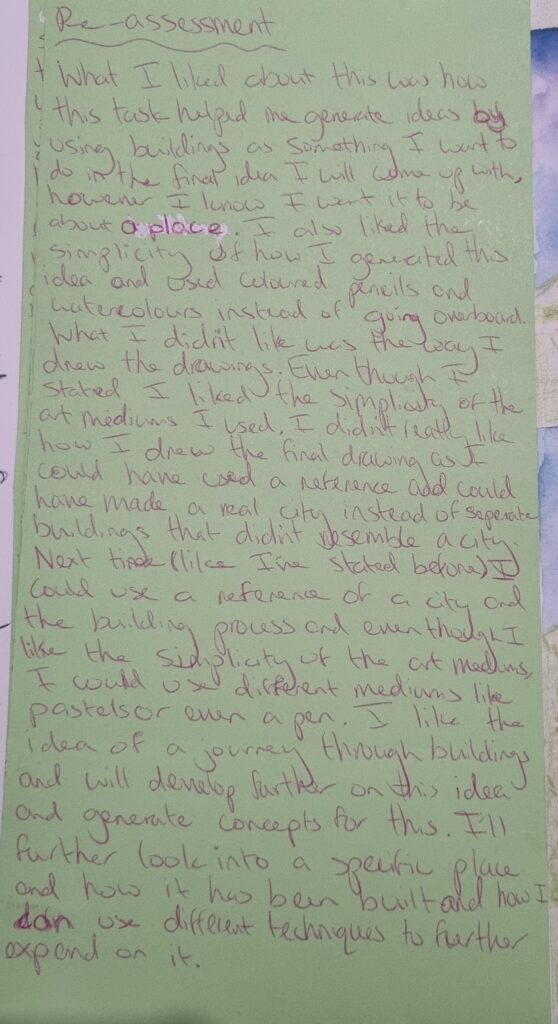 Re-assessment
What I liked about this was how
this task helped me generate ideas by
using buildings as something I want to
do in the final idea I will come up with,
however I know I want it to be
about a place. I also liked the
simplicity of how I generated this
idea and used coloured pencils and
watercolours instead of going overboard.
What I didn't like was the way I
drew the drawings. Even though I
stated I liked the simplicity of the
art mediums I used, I didn't really like
how I drew the final drawing as I
could have used a reference add could
have made a real city instead of seperate
buildings that didn't resemble a city.
Next time (like I've stated before) I
could use a reference of a city and
the building process and even though I
like the simplicity of the art mediums,
I could use different mediums like
pastels or even a pen. I like the
idea of a journey through buildings
and will develop further on this idea
and generate concepts for this. I'll
further look into a specific place
and how it has been built and how I
can use different techniques to further
expand on it.